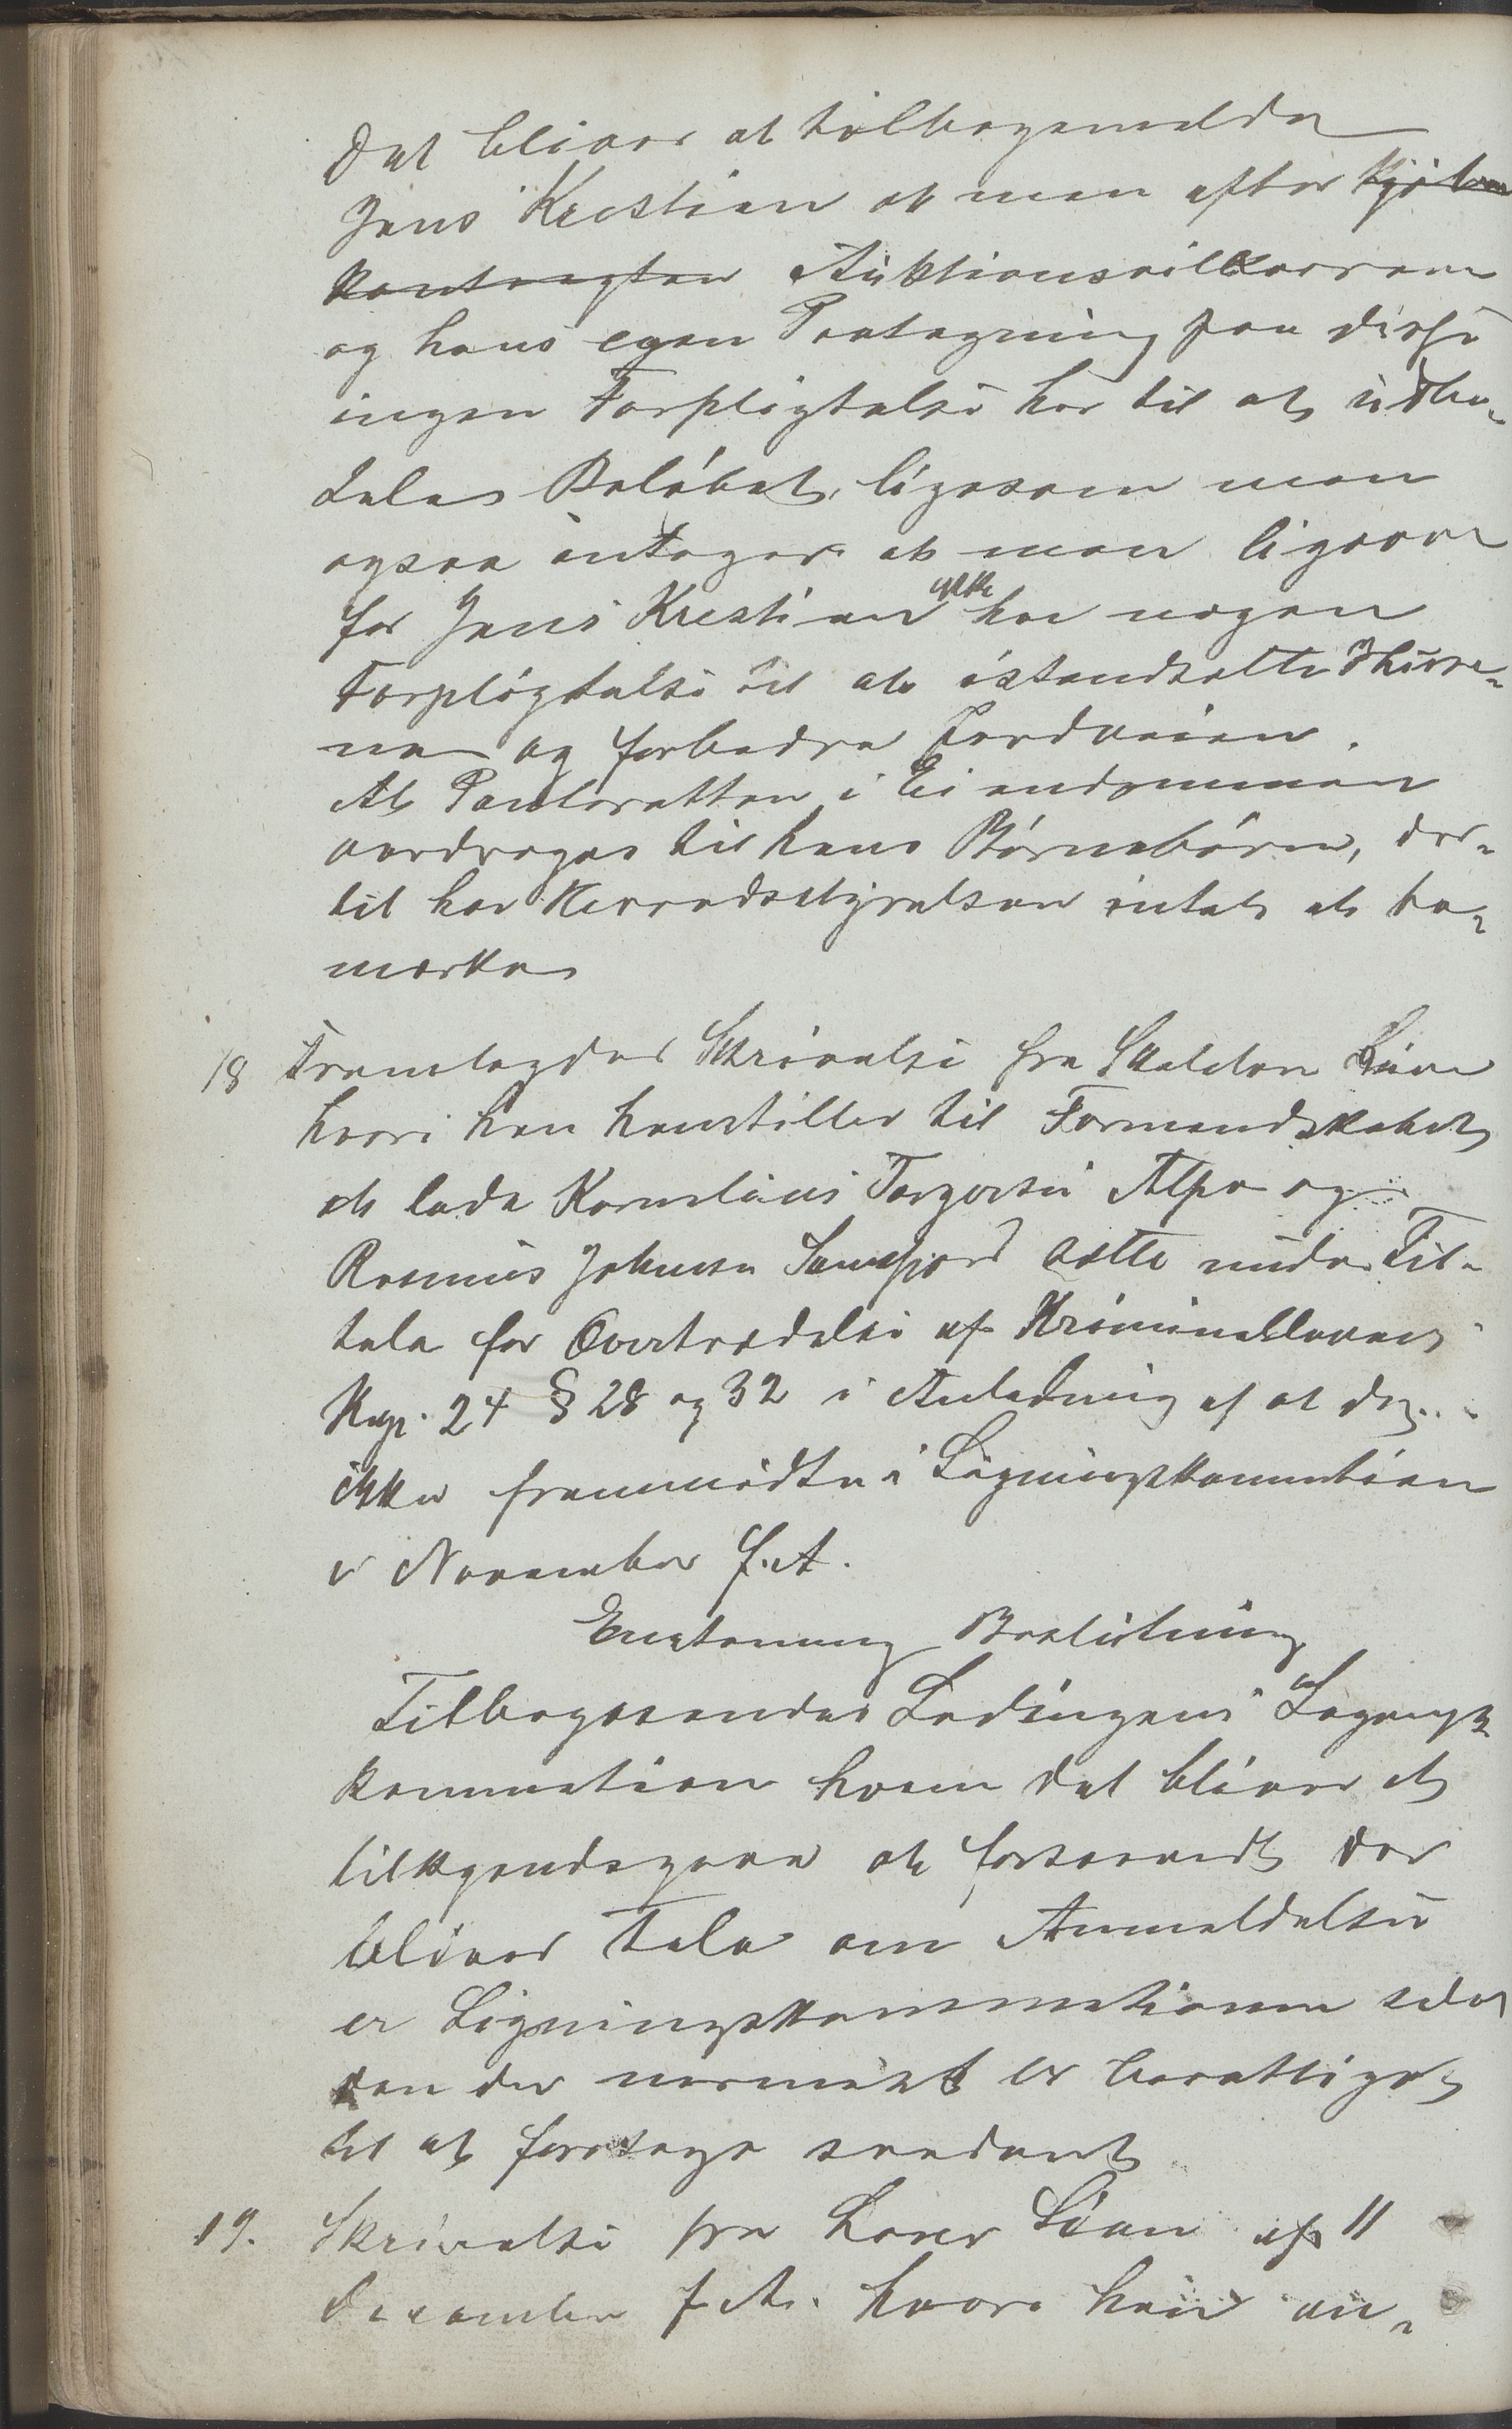 Det bliver at tilbagemelde
Jens Kristian at man efter Kjöbe
kontragten Auktionsvilkaarene
og hans egen Paategning paa disse
ingen Forpligtelse har til at udbe-
tales Belöbet, ligesom man
ogsaa antager at man ligeover
for Jens Kristian ikke har nogen
Forpligtelse til at istandsætte Husse-
ne og forbedre Jordveien.
At Panteretten i Eiendommen
overdrages til hans Börnebörn, der-
til har Herredsstyrelsen intet at be-
mærke
18 Fremlagdes Skrivelse fra
hvori han henstiller til Formandskabet
at lade Kornelius Torgersen Alpo og
Rasmus Johnsen Sandfjord sætte under Til-
tale for Overtrædelse af Kriminallovens
Kap. 24 § 28 og 32 i Anledning af at de
ikke fremmödte i Ligningskommetionen
i November f. A.
Enstemmig Beslutning
Tilbagesendes Lodingens Legnings-
kommetion hvem det bliver at
tilkjendegive at forsaavidt der
bliver Tale om Anmeldelse
er Ligningskommetionen selv
den der nærmest er berettiget
til at foretage saadant
19. Skrivelse fra af 11
December f. A. hvori han an-